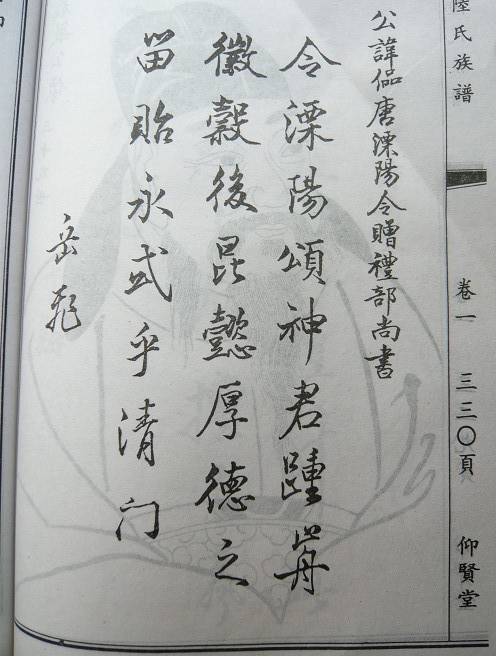 陸氏族譜 卷一 三三〇頁 仰賢堂
公諱偘唐溧陽令贈禮部尚書
令溧陽頌神君踵歬
徽穀後昆懿厚德之
留貽永式乎清门
岳飛